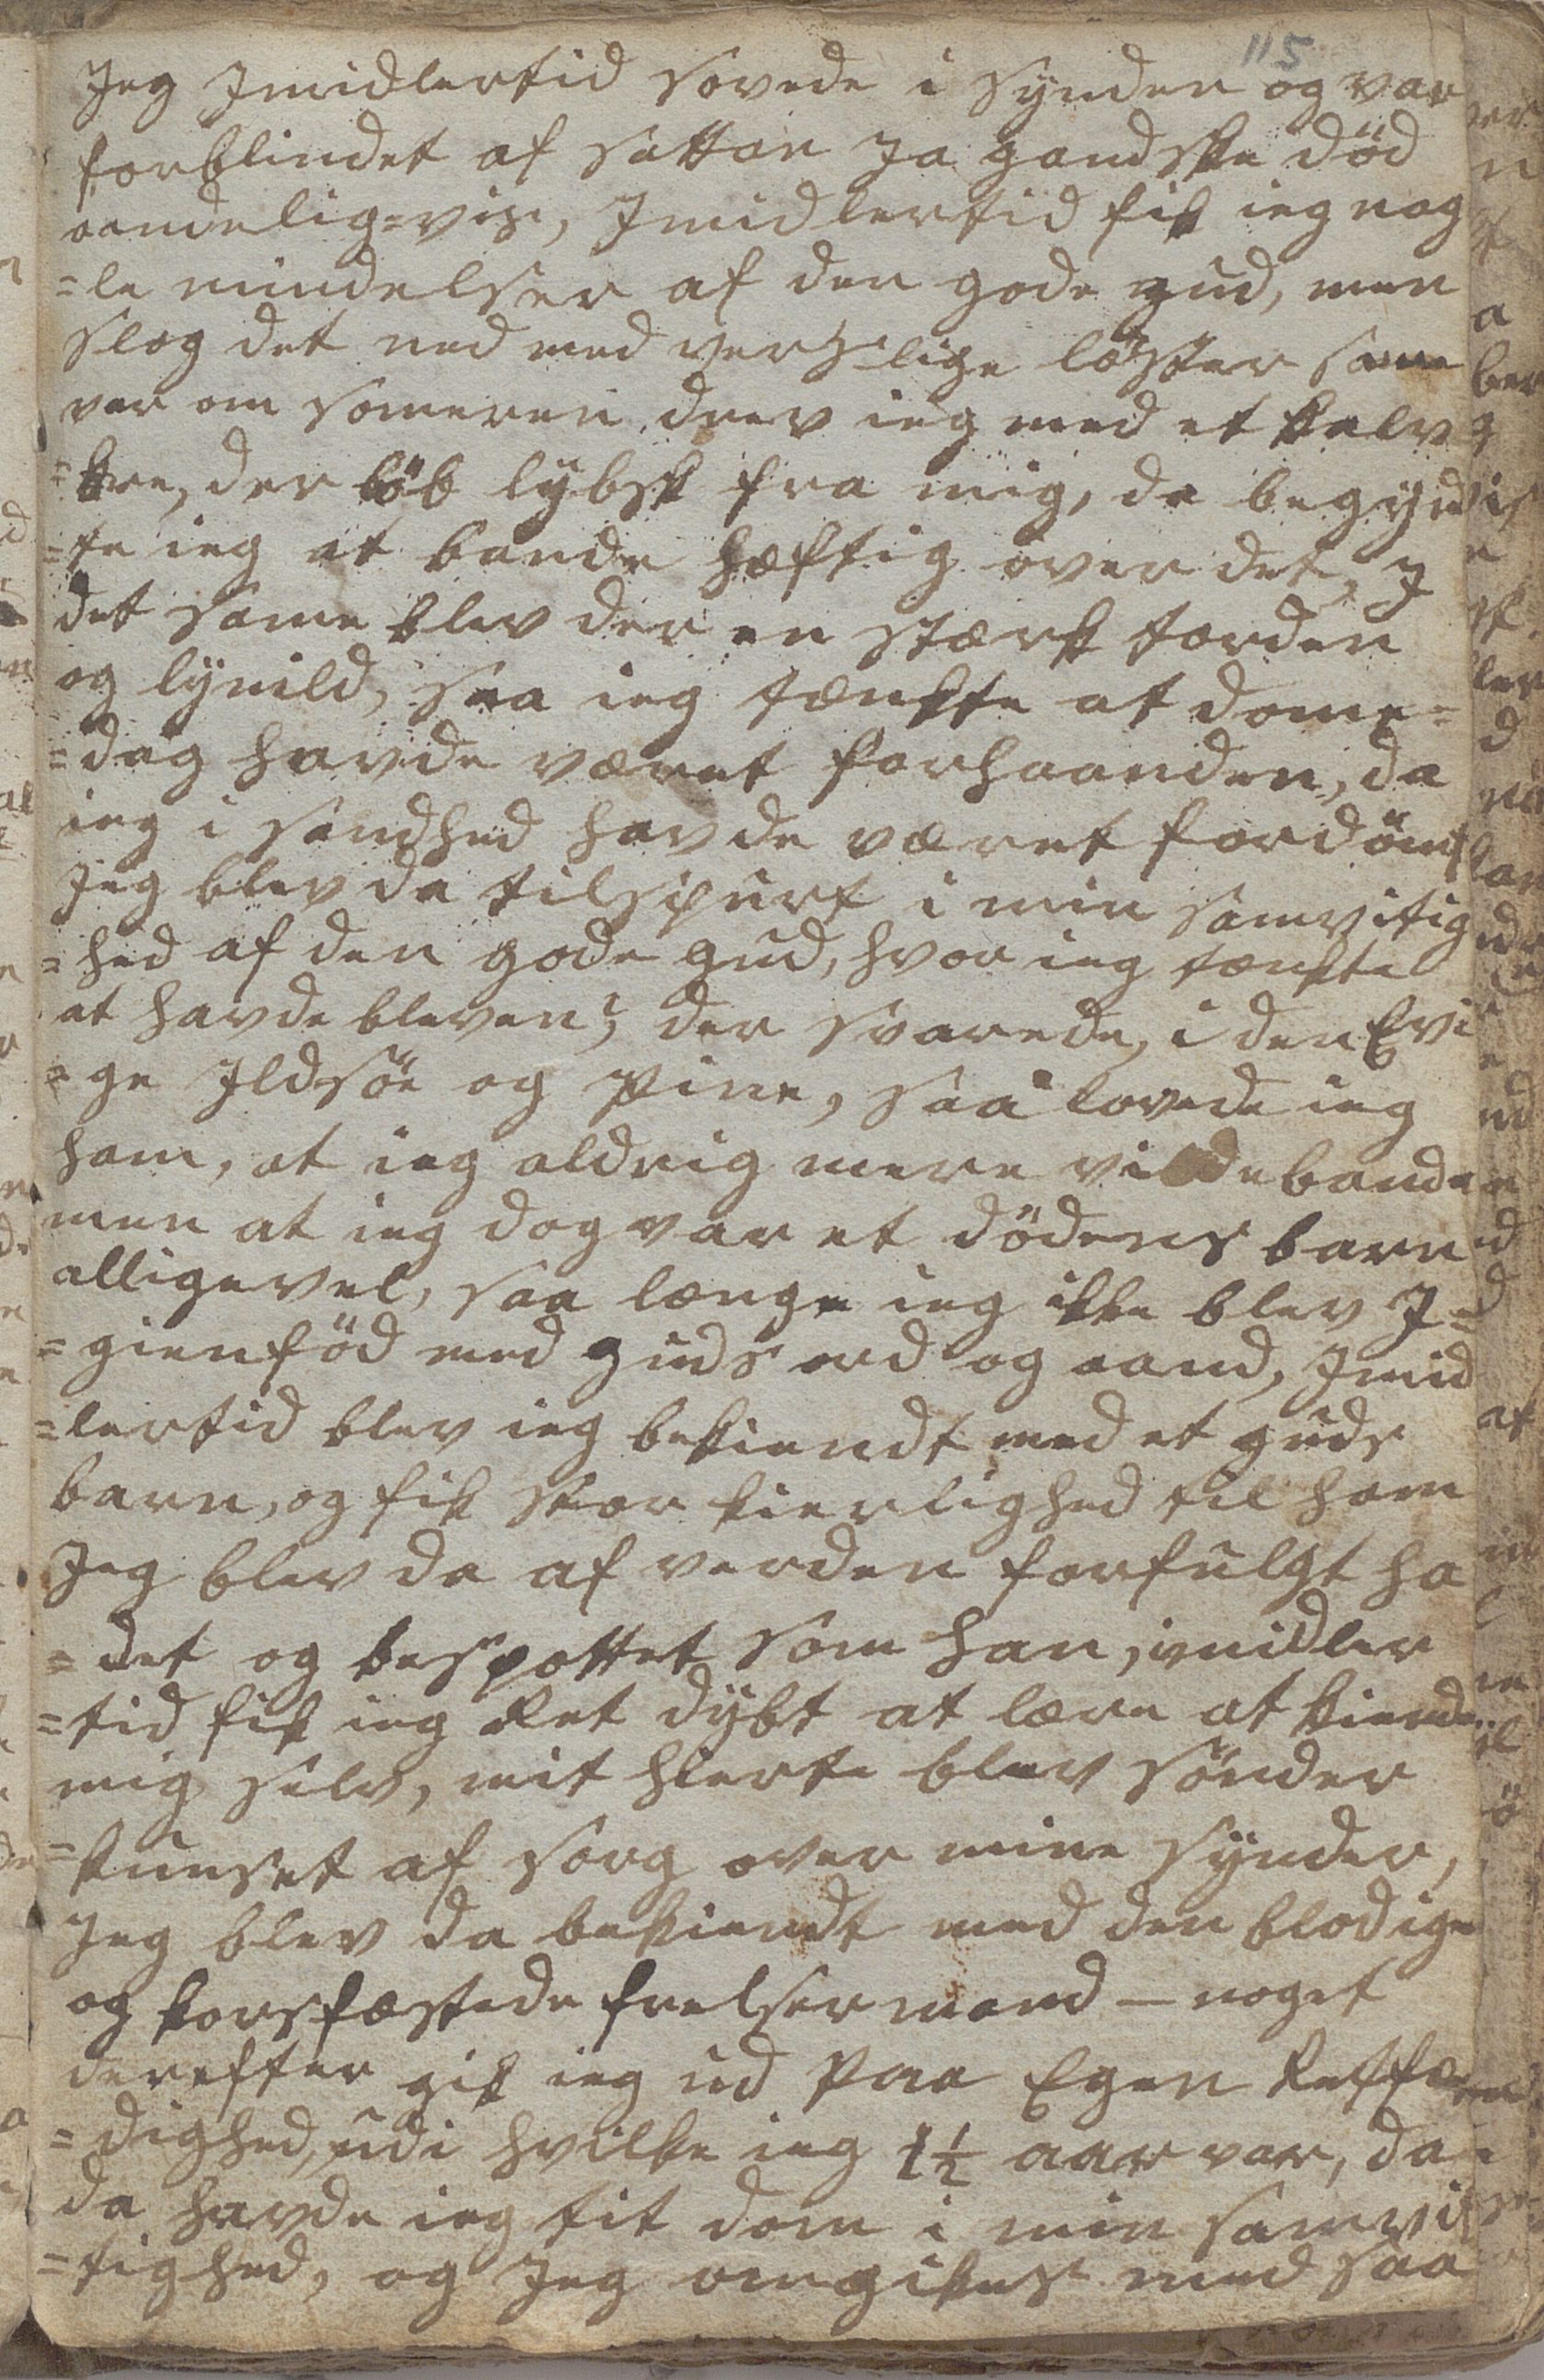 115
Jeg Imidlertid sovede i synden og var
forblindet af sattan Ja gandske död
aandelig=vis, Imidlertid fik ieg nog
=le mindelser af den gode gud, men
slog det ned med verslige løster same
var om someren drev ieg med et kalv
der løb lybsk fra mig, da begynd
=te ieg at bande hæftig over det, I
det same blev der en stærk torden
og lynild, saa ieg tænkte at dome=
=dag havde været forhaanden, da
ieg i sandhed havde været fordömt
Jeg blev da tilspurt i min samvitig
=hed af den gode gud, hvor ieg tænkte
at havde bleven, der svarede, i den Evi
=ge Ildsöe og pine, saa lovede ieg
ham, at ieg aldrig mere vilde bande
men at ieg dog var et dödens barn
alligevel, saa længe ieg ikke blev I=
=gienföd med guds ord og aand, Imid
=lertid blev ieg bekiendt med et guds
barn, og fik stor kierlighed til ham
Jeg blev da af verden forfulgt ha
=det og bespottet som han, imidler
=tid fik ieg Ret dybt at lære at kiende
mig selv, mit hierte blev sönder
=knuset af sorg over mine synder,
Jeg blev da bekiendt med den blodige
og korsfæstede frelsermand — noget
derefter gik ieg ud paa Egen Retfær
=dighed, udi hvilke ieg 1½ aar var, da
da havde ieg tit dom i min samvit
=tighed, og Jeg omgikes med saa